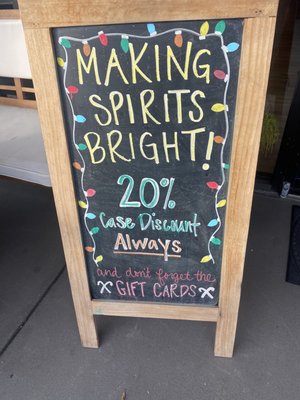 MAKING
SPIRITS
BRIGHT!
20%
Case Discount
Always
and don't forget the
GIFT CARDS